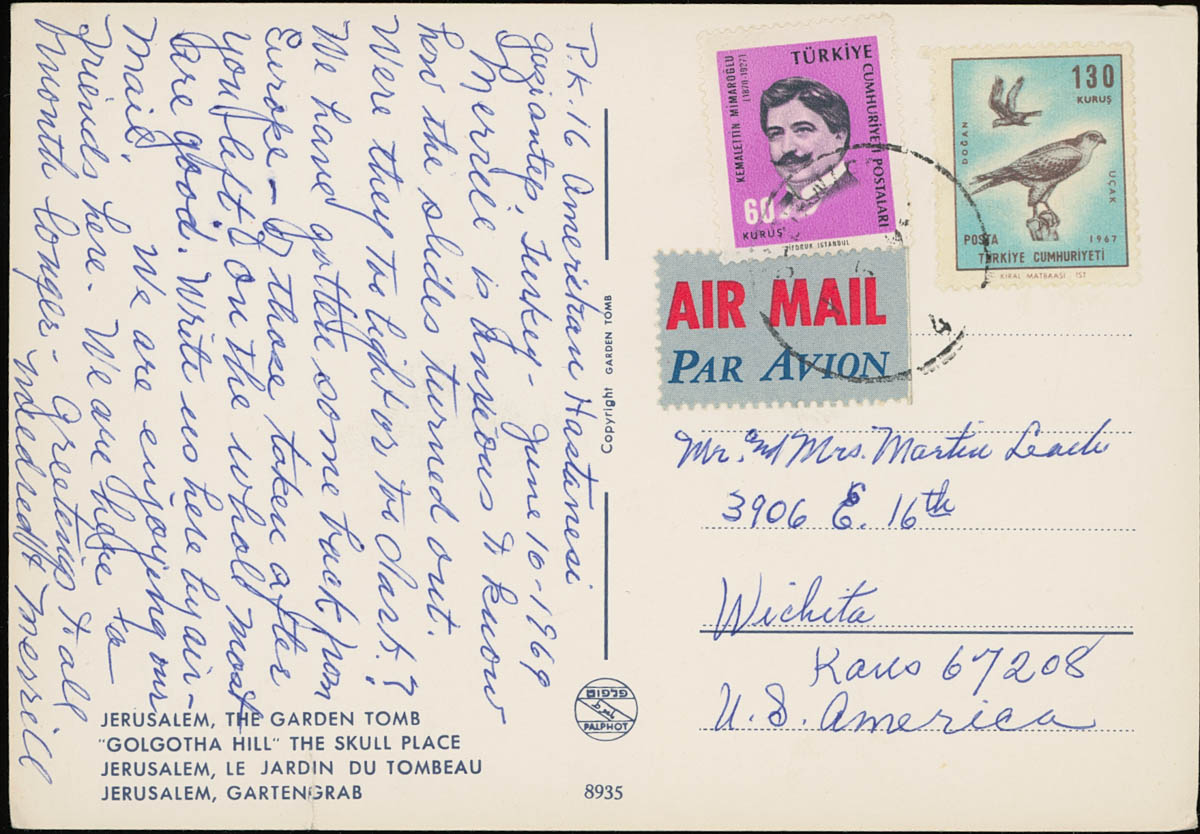 P.K. 16 Amerikan Hastanesi
Gaziantep, Turkey - June 10 - 1969
Merrill is anxious to know
how the slides turned out.
Were they too light or too dark?
We have gotten some back from
Europe - & those taken after
you left on the whole most
are good. Write us here by air-
mail. We are enjoying our
friends here. We are here to
month longer - Greetings to all
Mildred & Merrill
Copyright GARDEN TOMB
פלפוט
PALPHOT
JERUSALEM, THE GARDEN TOMB
"GOLGOTHA HILL" THE SKULL PLACE
JERUSALEM, LE JARDIN DU TOMBEAU
JERUSALEM, GARTENGRAB
8935
TÜRKİYE
CUMHURİYETİ POSTALARI
KEMALETTİN MİMAROĞLU
(1870-1927)
60
KURUŞ
İSTANBUL
130
KURUŞ
DOĞAN
UÇAK
POSTA
1967
TÜRKİYE CUMHURİYETİ
KIRAL MATBAASI İST
AIR MAIL
PAR AVION
Mr. and Mrs. Martin
3906 E. 16th
Wichita
Kans 67208
U.S. America